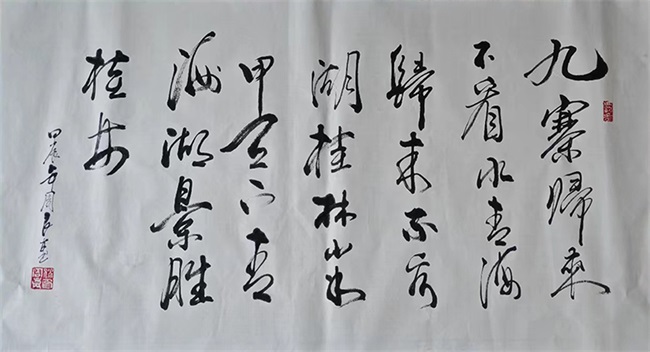 九寨歸來
不看水青海
歸來不看
湖桂林山水
甲天下青
海湖景勝
桂
甲辰年周